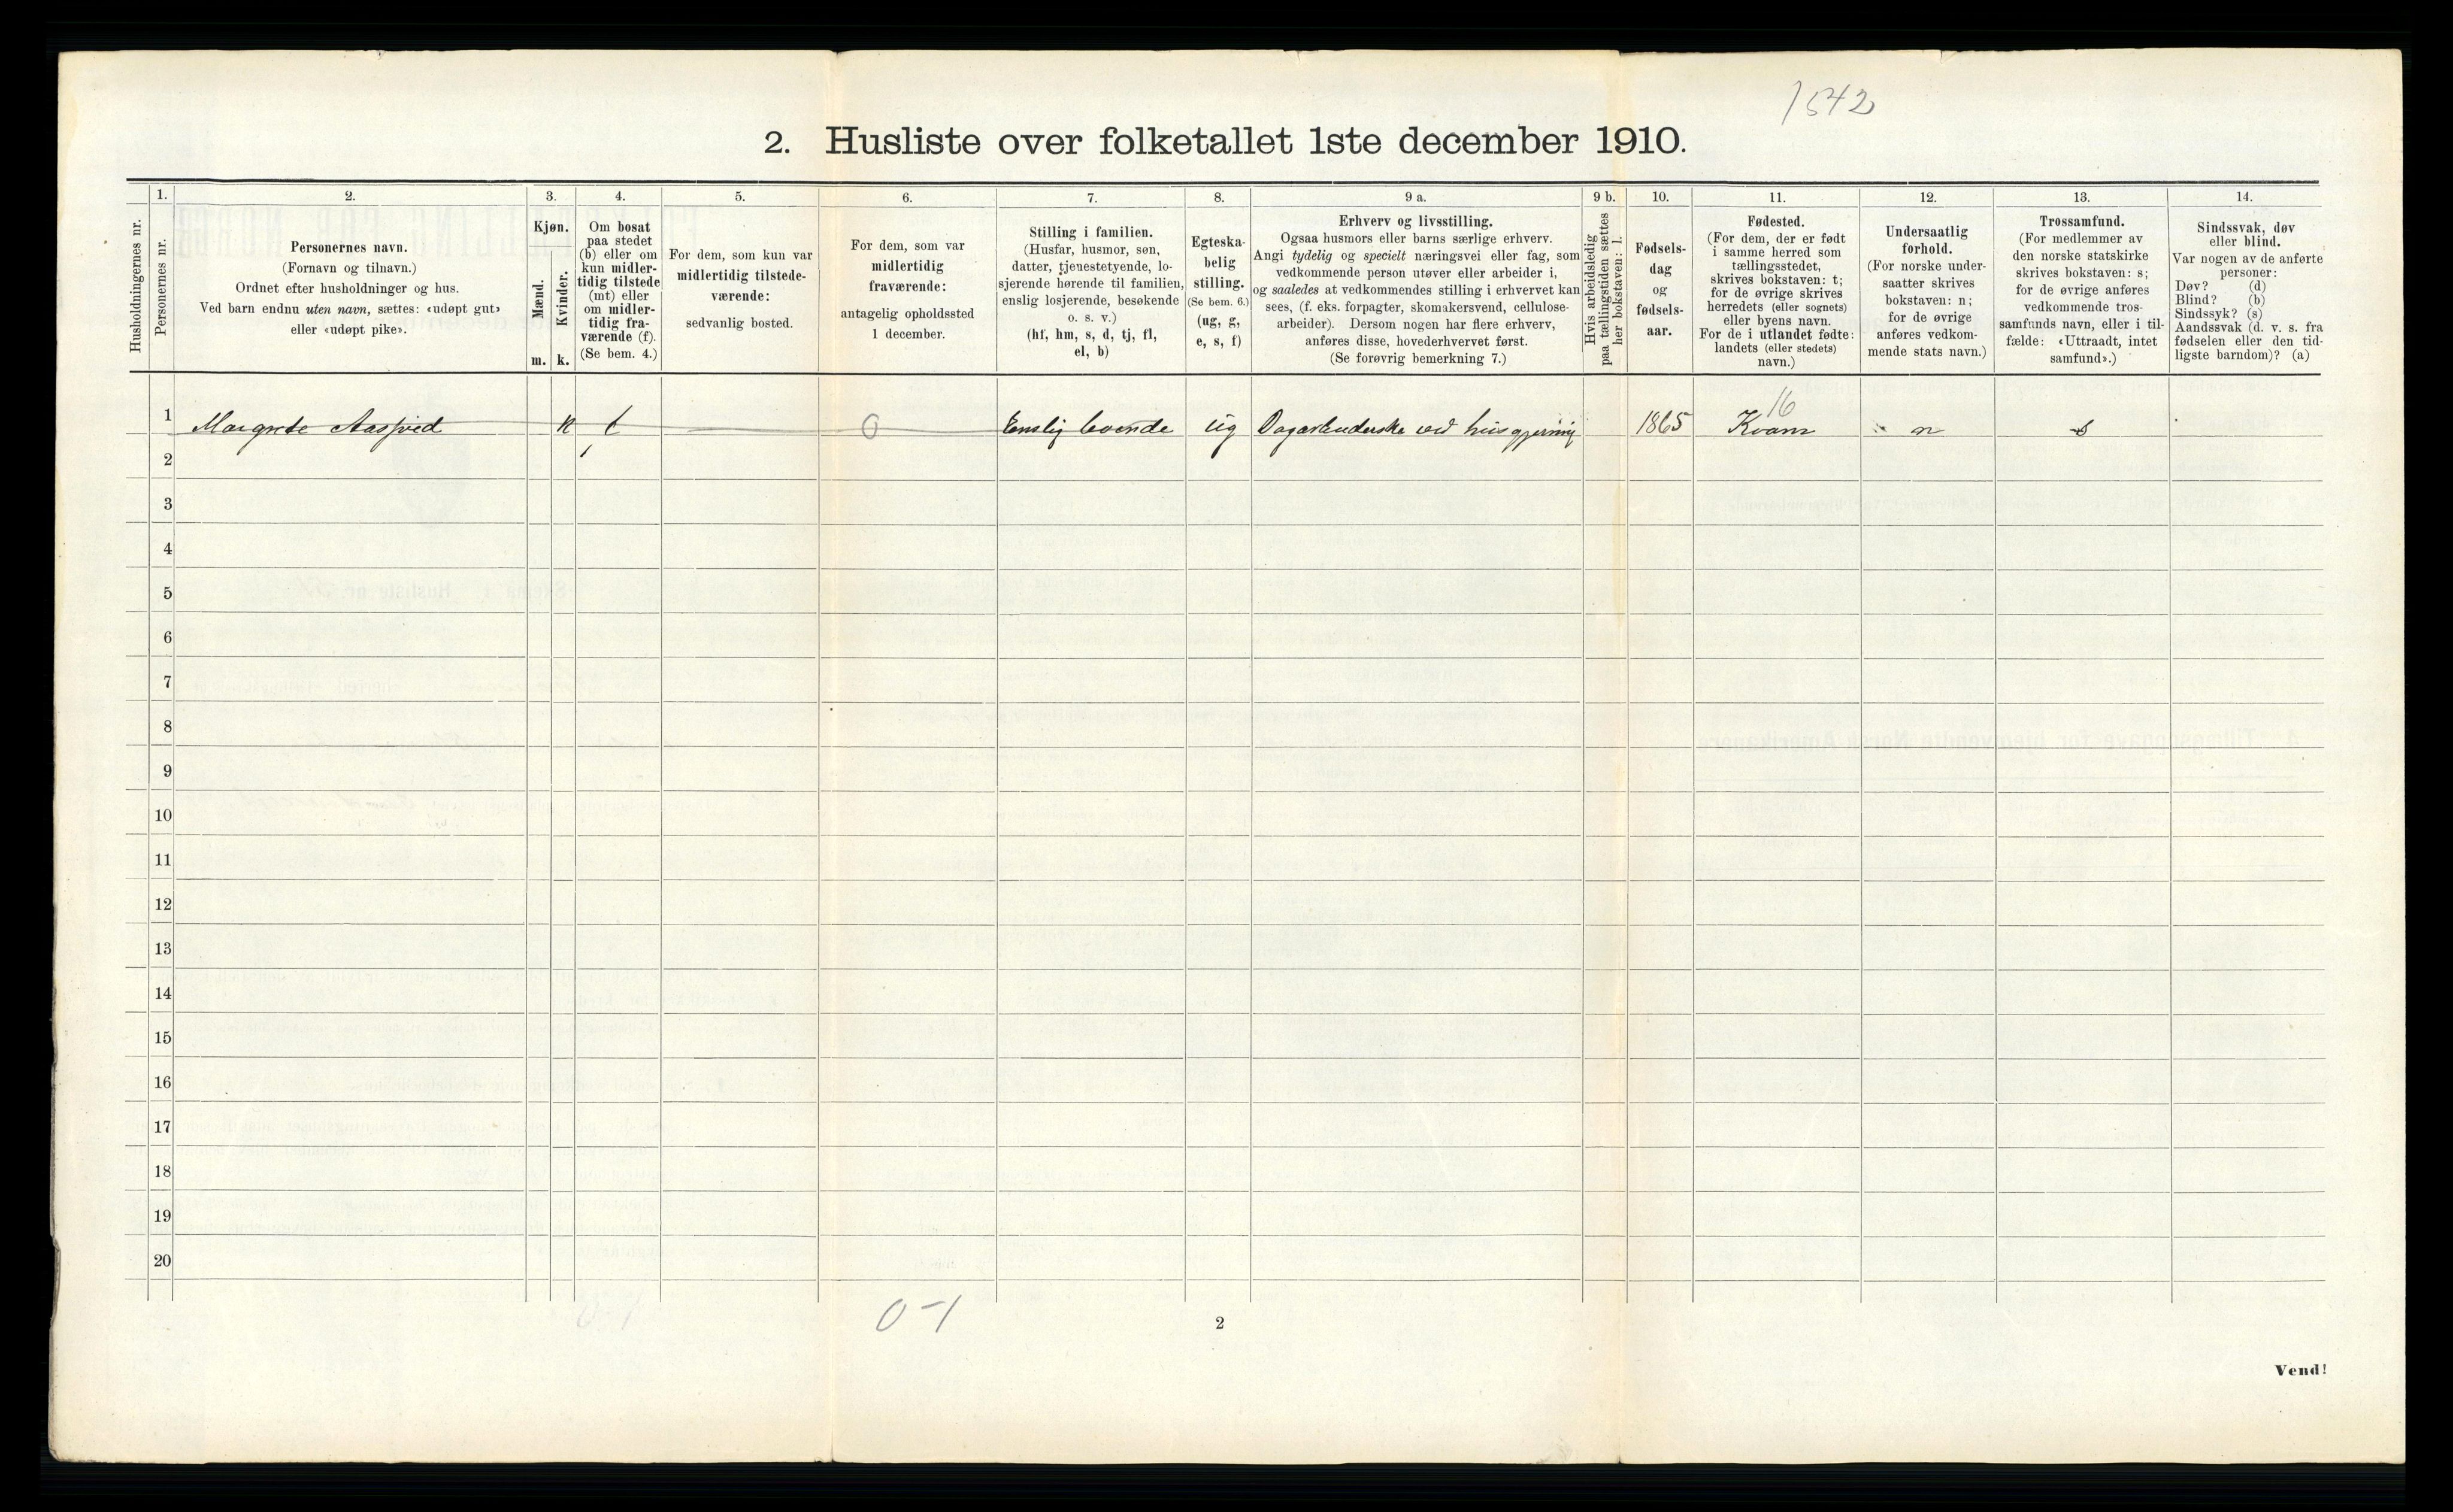 1542
2. Husliste over folketallet 1ste december 1910.
Husholdningernes nr.
1.
Personernes nr.
2.
Personernes navn.
(Fornavn og tilnavn.)
Ordnet efter husholdninger og hus.
Ved barn endnu uten navn, sættes: «udøpt gut»
eller «udøpt pike».
3.
Kjøn.
Mænd.
Kvinder.
m. k.
4.
Om bosat
paa stedet
(b) eller om
kun midler-
tidig tilstede
(mt) eller
om midler-
tidig fra-
værende (f).
(Se bem. 4.)
5.
For dem, som kun var
midlertidig tilstede-
værende:
sedvanlig bosted.
6.
For dem, som var
midlertidig
fraværende:
antagelig opholdssted
1 december.
7.
Stilling i familien.
(Husfar, husmor, søn,
datter, tjenestetyende, lo-
sjerende hørende til familien,
enslig losjerende, besøkende
o. s. v.)
(hf, hm, s, d, tj, fl,
el, b)
8.
Egteska-
belig
stilling.
(Se bem. 6.)
(ug, g,
e, s, f)
9 a.
Erhverv og livsstilling.
Ogsaa husmors eller barns særlige erhverv.
Angi tydelig og specielt næringsvei eller fag, som
vedkommende person utøver eller arbeider i,
og saaledes at vedkommendes stilling i erhvervet kan
sees, (f. eks. forpagter, skomakersvend, cellulose-
arbeider). Dersom nogen har flere erhverv,
anføres disse, hovederhvervet først.
(Se forøvrig bemerkning 7.)
9 b.
Hvis arbeidsledig
paa tællingstiden sættes
her bokstaven: l.
10.
Fødsels-
dag
og
fødsels-
aar.
11.
Fødested.
(For dem, der er født
i samme herred som
tællingsstedet,
skrives bokstaven: t;
for de øvrige skrives
herredets (eller sognets)
eller byens navn.
For de i utlandet fødte:
landets (eller stedets)
navn.)
12.
Undersaatlig
forhold.
(For norske under-
saatter skrives
bokstaven: n;
for de øvrige
anføres vedkom-
mende stats navn.)
13.
Trossamfund.
(For medlemmer av
den norske statskirke
skrives bokstaven: s;
for de øvrige anføres
vedkommende tros-
samfunds navn, eller i til-
fælde: «Uttraadt, intet
samfund».)
14.
Sindssvak, døv
eller blind.
Var nogen av de anførte
personer:
Døv? (d)
Blind? (b)
Sindssyk? (s)
Aandssvak (d. v. s. fra
fødselen eller den tid-
ligste barndom)? (a)
16
1 Margrete k 0 Enslig levende ug ved husgjerning 1865 Kvam n s
2
3
4
5
6
7
8
9
10
11
12
13
14
15
16
17
18
19
20
0-1 0-1
2
Vend!